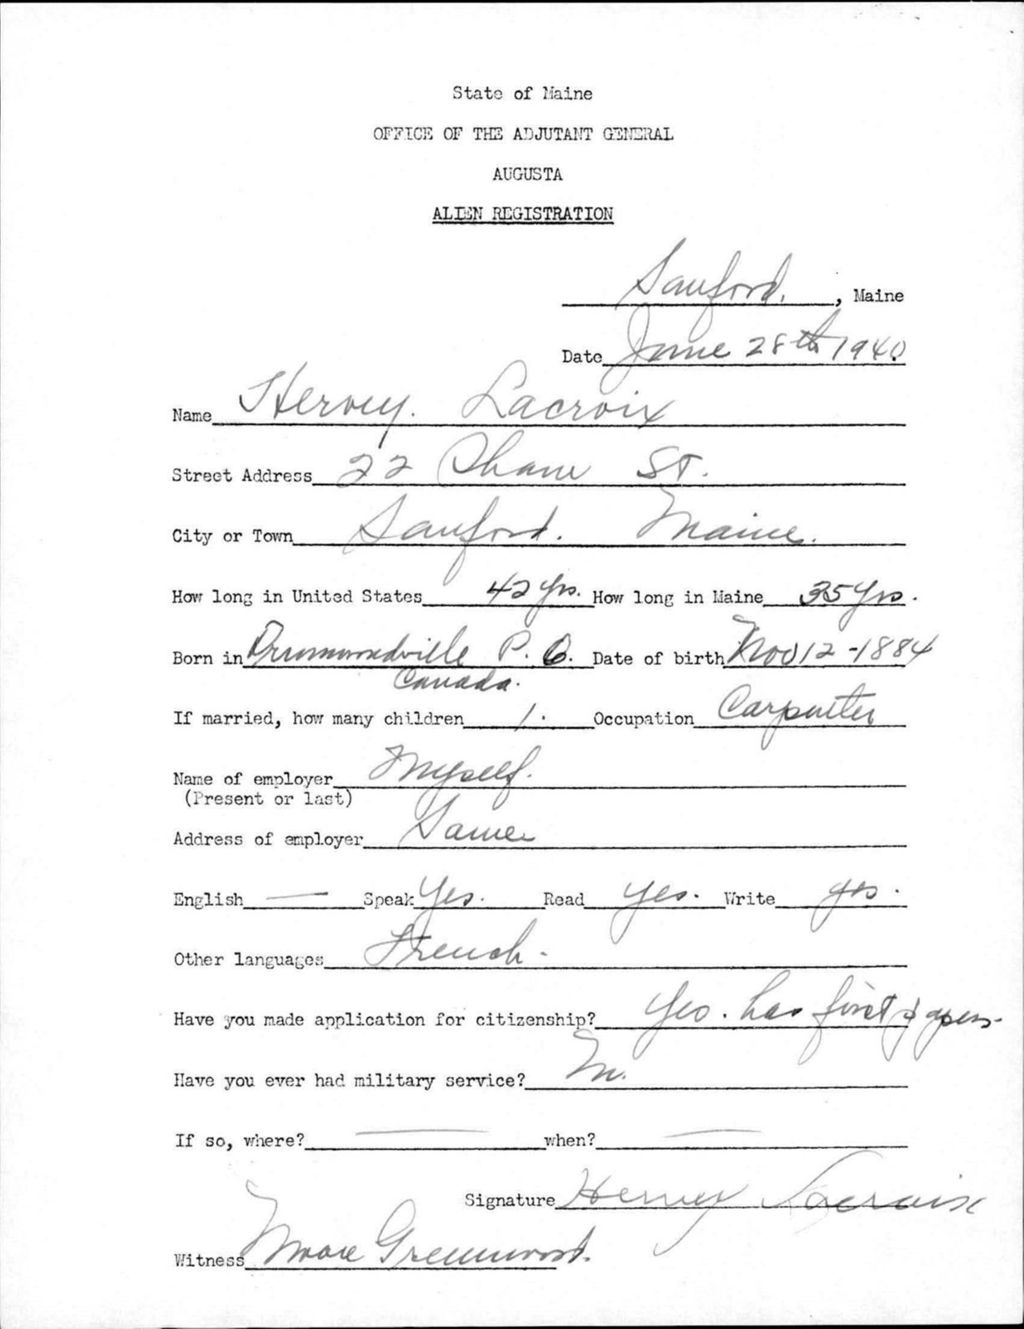 State of Maine
OFFICE OF THE ADJUTANT GENERAL
AUGUSTA
ALIEN REGISTRATION
Sanford, , Maine
Date June 28th 1940
Name Hervey. Lacroix
Street Address 22 St.
City or Town Sanford. Maine.
How long in United States 42 yrs. How long in Maine 35 yrs.
Born in Drummondville P. Q. Date of birth Nov 12 - 1884
Canada.
If married, how many children 1. Occupation Carpenter
Name of employer Myself.
(Present or last)
Address of employer Same
English — Speak Yes. Read yes. Write yes.
Other languages French -
Have you made application for citizenship? Yes. has first papers.
Have you ever had military service? No.
If so, where? — when? —
Signature Hervey Lacroix
Witness Greenwood.